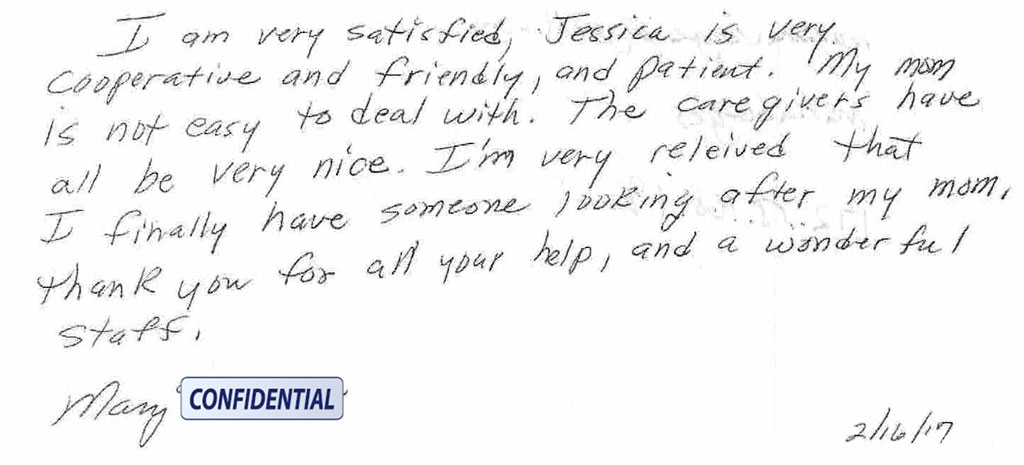 I am very satisfied, Jessica is very
cooperative and friendly, and patient. My mom
is not easy to deal with. The caregivers have
all be very nice. I'm very releived that
I finally have someone looking after my mom.
thank you for all your help, and a wonderful
staff.
Mary CONFIDENTIAL
2/16/17